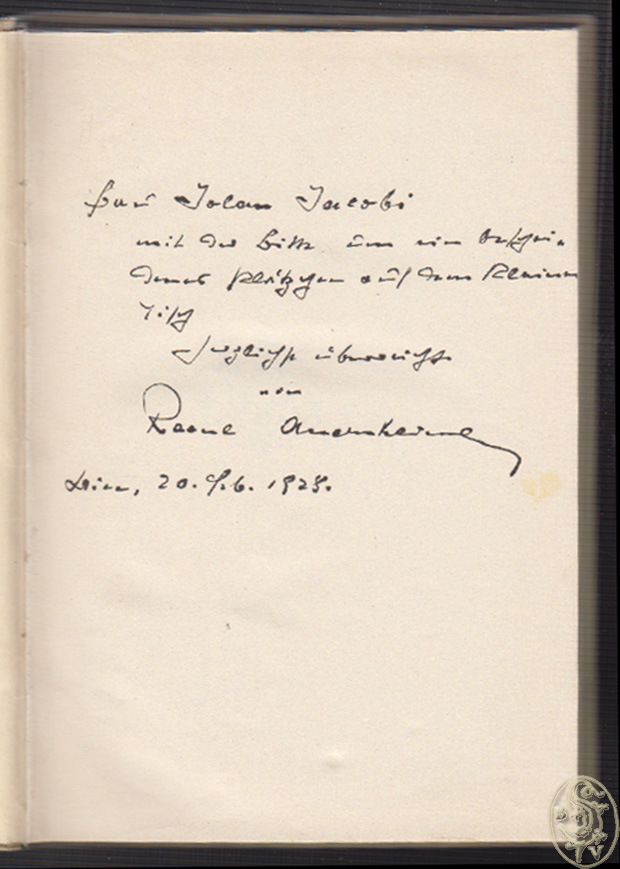 Frau Jolan Jacobi
mit der Bitte um ein beschei-
denes Plätzchen auf dem kleinen
Tisch
herzlichst überreicht
von
Raoul Auernheimer
Wien, 20. Feb. 1928.